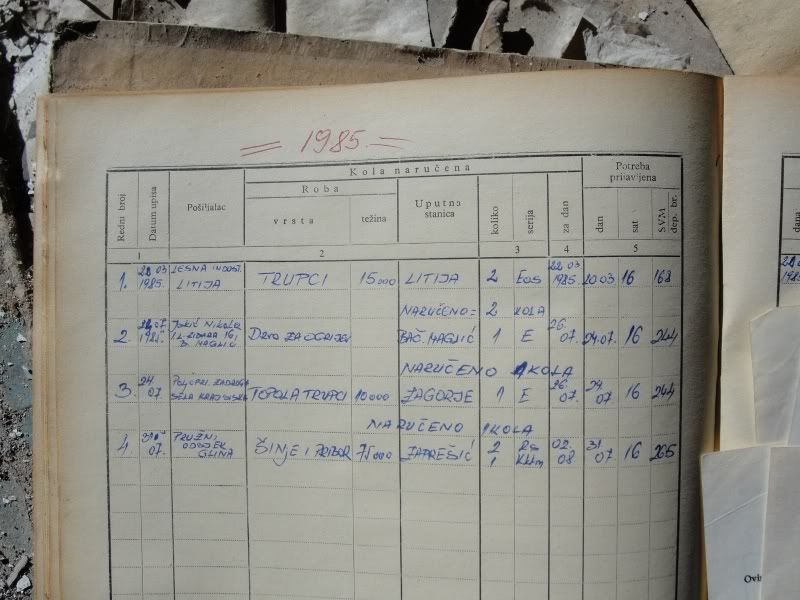 = 1985. =
Kola naručena
Potreba prijavljena
Redni broj
Datum upisa
Pošiljalac
Roba
vrsta
težina
Uputna stanica
koliko
serija
za dan
dan
sat
SVM dep. br.
1 2 3 4 5
1. 03 1985. LESNA INDUST. LITIJA TRUPCI 15000 LITIJA 2 Eas 22 03 1985. 20.03. 16 168
NARUČENO = 2 KOLA
2. 07. 1985. NIKOLA B. MAGLIĆ DRVO ZA OGRIJEV BAČ. MAGLIĆ 1 E 26. 07. 24.07. 16 244
NARUČENO 1 KOLA
3. 24. 07. POLJOPRI. ZADRUGA TOPOLA TRUPCI 10000 ZAGORJE 1 E 26. 07. 24 07. 16 244
NARUČENO 1 KOLA
4. 07. PRUŽNI ODSJEK GLINA ŠINJE I PRIBOR 75000 ZAPREŠIĆ 2 Rs 1 02. 08 31 07 16 265
dana
Ovi